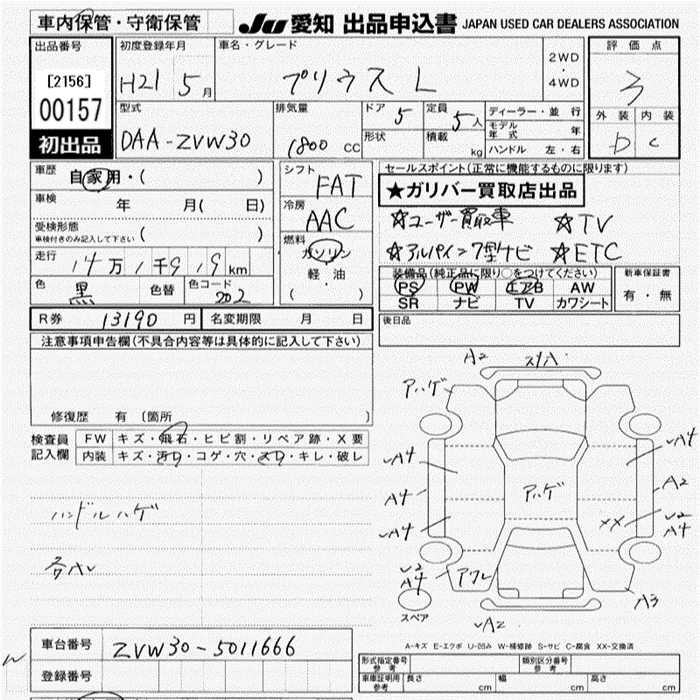 車内保管・守衛保管
JU 愛知 出品申込書 JAPAN USED CAR DEALERS ASSOCIATION
出品番号 初度登録年月 車名・グレード 2WD・4WD 評価点
[2156] H21 5月 プリウス L 3
00157
初出品
型式 排気量 ドア 5 定員 5人 ディーラー・並行 外装 内装
DAA-ZVW30 1800 CC 形状 積載 kg モデル年式 年 D C
ハンドル 左・右
車歴 自家用・( ) シフト FAT セールスポイント(正常に機能するものに限ります)
車検 年 月( 日) 冷房 AAC ★ガリバー買取店出品
受検形態 車検付きのみ記入して下さい ( ) 燃料 ガソリン 軽油 ( ・ )
☆ユーザー買取車 ☆TV
☆アルパイン7型ナビ ☆ETC
走行 14万1千919km
色 黒 色替 色コード 202
装備品(純正品に限り○をつけてください) 新車保証書
PS PW エアB AW 有・無
SR ナビ TV カワシート
R券 13190円 名変期限 月 日 後日品
注意事項申告欄(不具合内容等は具体的に記入して下さい)
修復歴 有 〔箇所 〕
検査員記入欄 FW キズ・飛石・ヒビ割・リペア跡・X要
内装 キズ・汚レ・コゲ・穴・スレ・キレ・破レ
ハンドルハゲ
A2
アハゲ
A4
A4
A4
アハゲ
A4
A2
XX
A4
A4
アワレ
A3
A2
スペア
A-キズ E-エクボ U-凹み W-補修跡 S-サビ C-腐食 XX-交換済
車台番号 ZVW30-5011666
登録番号
型式指定番号 参考 類別区分番号 参考
車庫証明用 参考 長さ cm 幅 cm 高さ cm